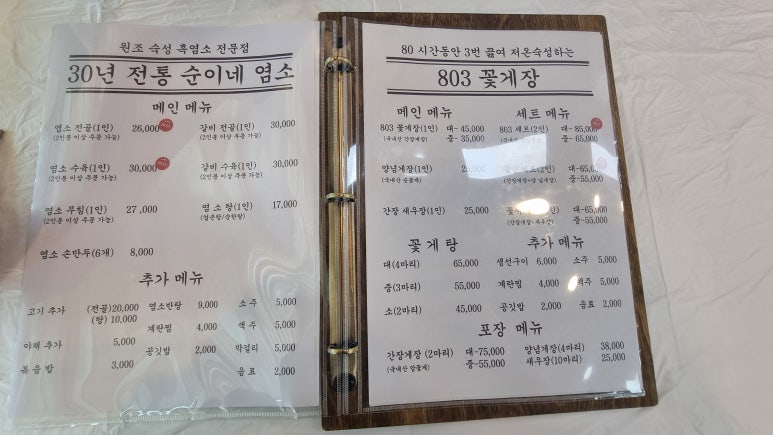 원조 숙성 흑염소 전문점
30년 전통 순이네 염소
메인 메뉴
염소 전골(1인) 26,000
(2인분 이상 주문 가능)
갈비 전골(1인) 30,000
(2인분 이상 주문 가능)
염소 수육(1인) 30,000
(2인분 이상 주문 가능)
갈비 수육(1인) 30,000
(2인분 이상 주문 가능)
염소 무침(1인) 27,000
(2인분 이상 주문 가능)
염소 탕(1인) 17,000
(얼큰탕/순한탕)
염소 손만두(6개) 8,000
추가 메뉴
고기 추가 (전골)20,000
(탕) 10,000
야채 추가 5,000
볶음밥 3,000
염소반탕 9,000
계란찜 4,000
공깃밥 2,000
소주 5,000
맥주 5,000
막걸리 5,000
음료 2,000
80 시간동안 3번 끓여 저온숙성하는
803 꽃게장
메인 메뉴
803 꽃게장(1인) 대- 45,000
(국내산 간장게장) 중- 35,000
양념게장(1인)
(국내산 숫꽃게)
간장 새우장(1인) 25,000
세트 메뉴
803 세트(2인) 대- 85,000
중- 65,000
세트(2인) 대-65,000
(간장게장+양념게장) 중-55,000
(1인) 대-65,000
중-55,000
꽃게탕
대(4마리) 65,000
중(3마리) 55,000
소(2마리) 45,000
추가 메뉴
생선구이 6,000
계란찜 4,000
공깃밥 2,000
소주 5,000
맥주 5,000
음료 2,000
포장 메뉴
간장게장 (2마리) 대-75,000
(국내산 암꽃게) 중-55,000
양념게장(4마리) 38,000
새우장(10마리) 25,000